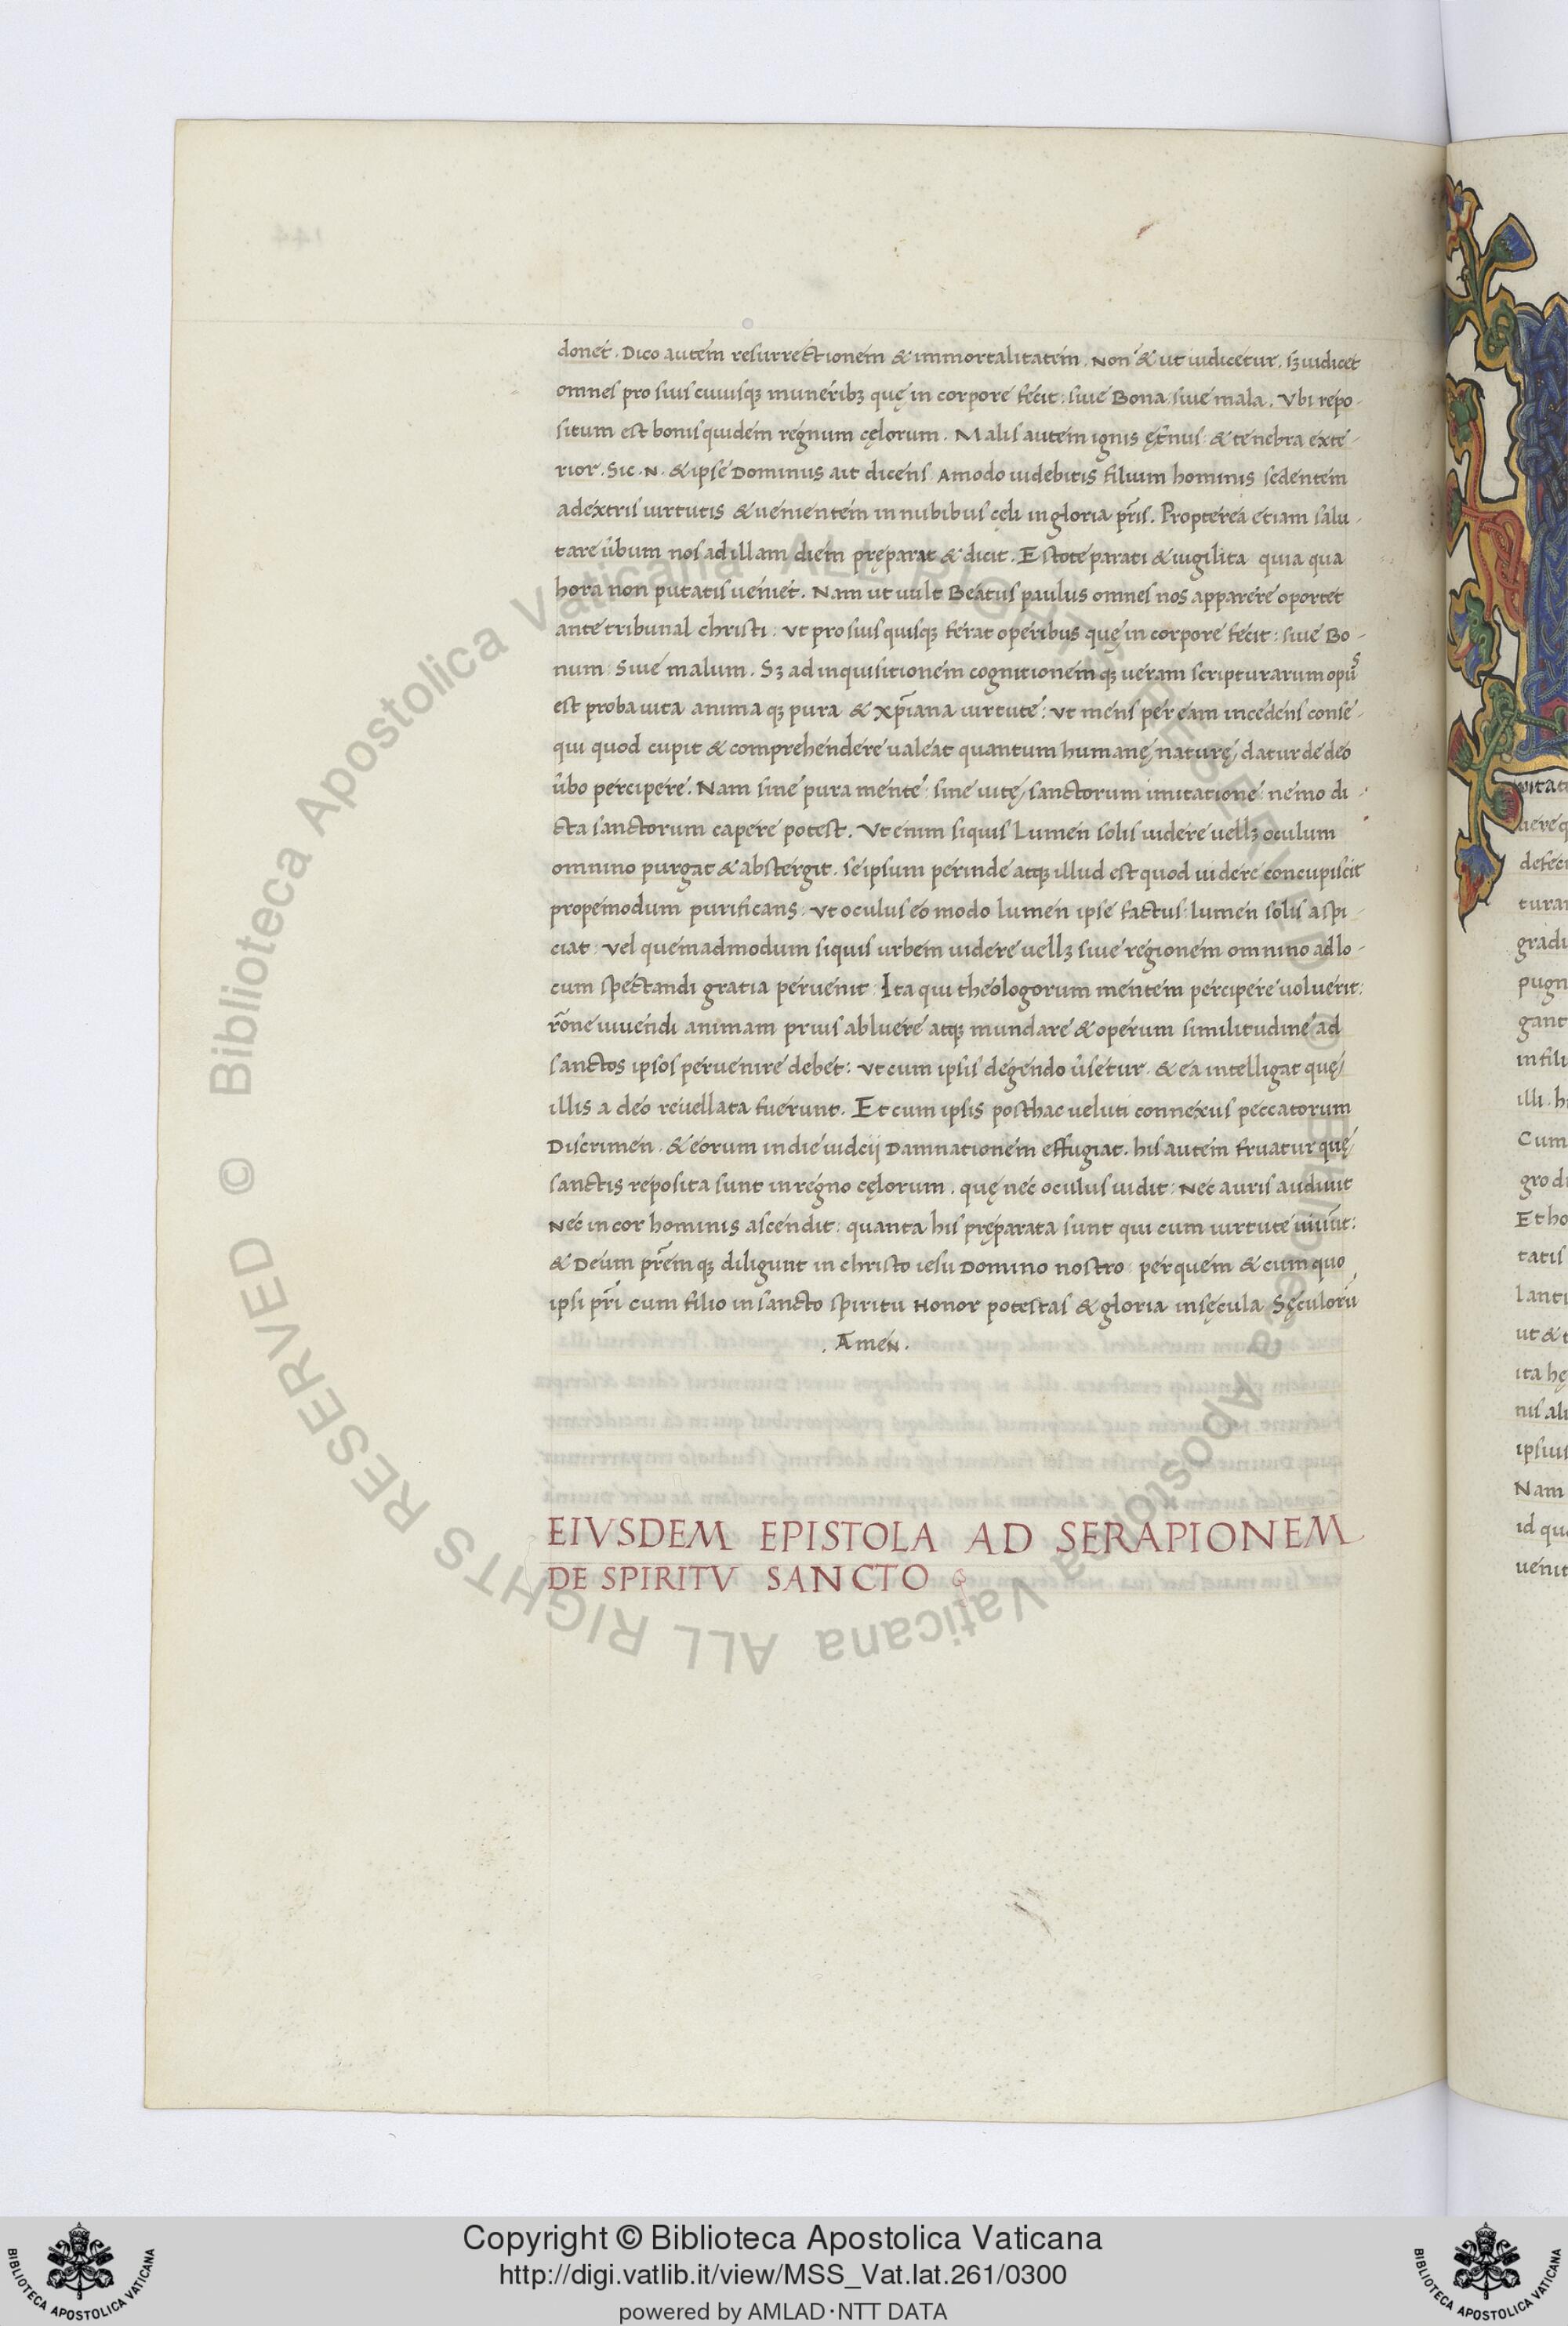 donet. Dico autem resurrectionem & immortalitatem. Non & ut iudicetur. sꝫ iudicet
omnes pro suis cuiusqꝫ muneribꝫ quę in corpore fecit: siue Bona siue mala. Vbi repo-
situm est bonis quidem regnum cęlorum. Malis autem ignis ęt̃nus: & tenebra exte-
rior. Sic .N. & ipse Dominus ait dicens Amodo uidebitis filium hominis sedentem
adextris uirtutis & uenientem in nubibus celi in gloria pr̃is. Propterea etiam salu-
tare ûbum nos ad illam diem pręparat & dicit. Estote parati & uigilita quia qua
hora non putatis ueniet. Nam ut uult Beatus paulus omnes nos apparere oportet
ante tribunal christi: Vt pro suis quisqꝫ ferat operibus quę in corpore fecit: siue Bo-
num: Siue malum. Sꝫ ad inquisitionem cognitionem qꝫ ueram scripturarum opus
est proba uita anima qꝫ pura & xp̃iana uirtute: Vt mens per eam incedens conse-
qui quod cupit & comprehendere ualeat quantum humanę naturę datur de deo
ûbo percipere. Nam sine pura mente: sine uitę sanctorum imitatione nemo di-
cta sanctorum capere potest. Vt enim siquis Lumen solis uidere uellꝫ oculum
omnino purgat & abstergit. seipsum perinde atqꝫ illud est quod uidere concupiscit
propemodum purificans: Vt oculus eo modo lumen ipse factus: lumen solis aspi-
ciat: Vel quemadmodum siquis urbem uidere uellꝫ siue regionem omnino ad lo-
cum spectandi gratia peruenit: Ita qui theologorum mentem percipere uoluerit:
rõne uiuendi animam prius abluere atqꝫ mundare & operum similitudine ad
sanctos ipsos peruenire debet: Vt cum ipsis degendo ûsetur. & ea intelligat quę
illis a deo reuellata fuerunt. Et cum ipsis posthac ueluti connexus peccatorum
Discrimen. & eorum in die iudcij Damnationem effugiat. his autem fruatur quę
sanctis reposita sunt in regno cęlorum. quę nec oculus uidit: Nec auris audiuit
Nec in cor hominis ascendit: quanta his pręparata sunt qui cum uirtute uiuũt:
& Deum pr̃em qꝫ diligunt in christo iesu Domino nostro: per quem & cum quo
ipsi pr̃i cum filio in sancto spiritu Honor potestas & gloria in sęcula Sęculorũ
. Amen.
EIVSDEM EPISTOLA AD SERAPIONEM
DE SPIRITV SANCTO
© Biblioteca Apostolica Vaticana ALL RIGHTS RESERVED
© Biblioteca Apostolica Vaticana ALL RIGHTS RESERVED
Copyright © Biblioteca Apostolica Vaticana
http://digi.vatlib.it/view/MSS_Vat.lat.261/0300
powered by AMLAD·NTT DATA
BIBLIOTECA APOSTOLICA VATICANA
BIBLIOTECA APOSTOLICA VATICANA